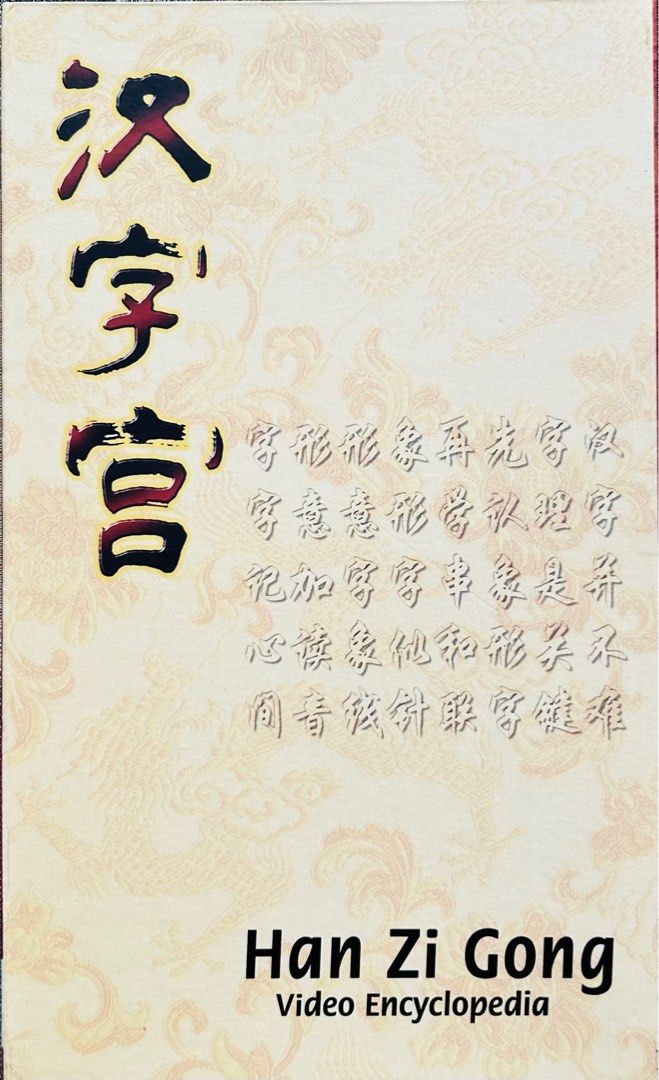 汉字宫
汉字并不难
字理是关键
先认象形字
再学串和联
象形字似针
形意字象线
形意加读音
字字记心间
Han Zi Gong
Video Encyclopedia